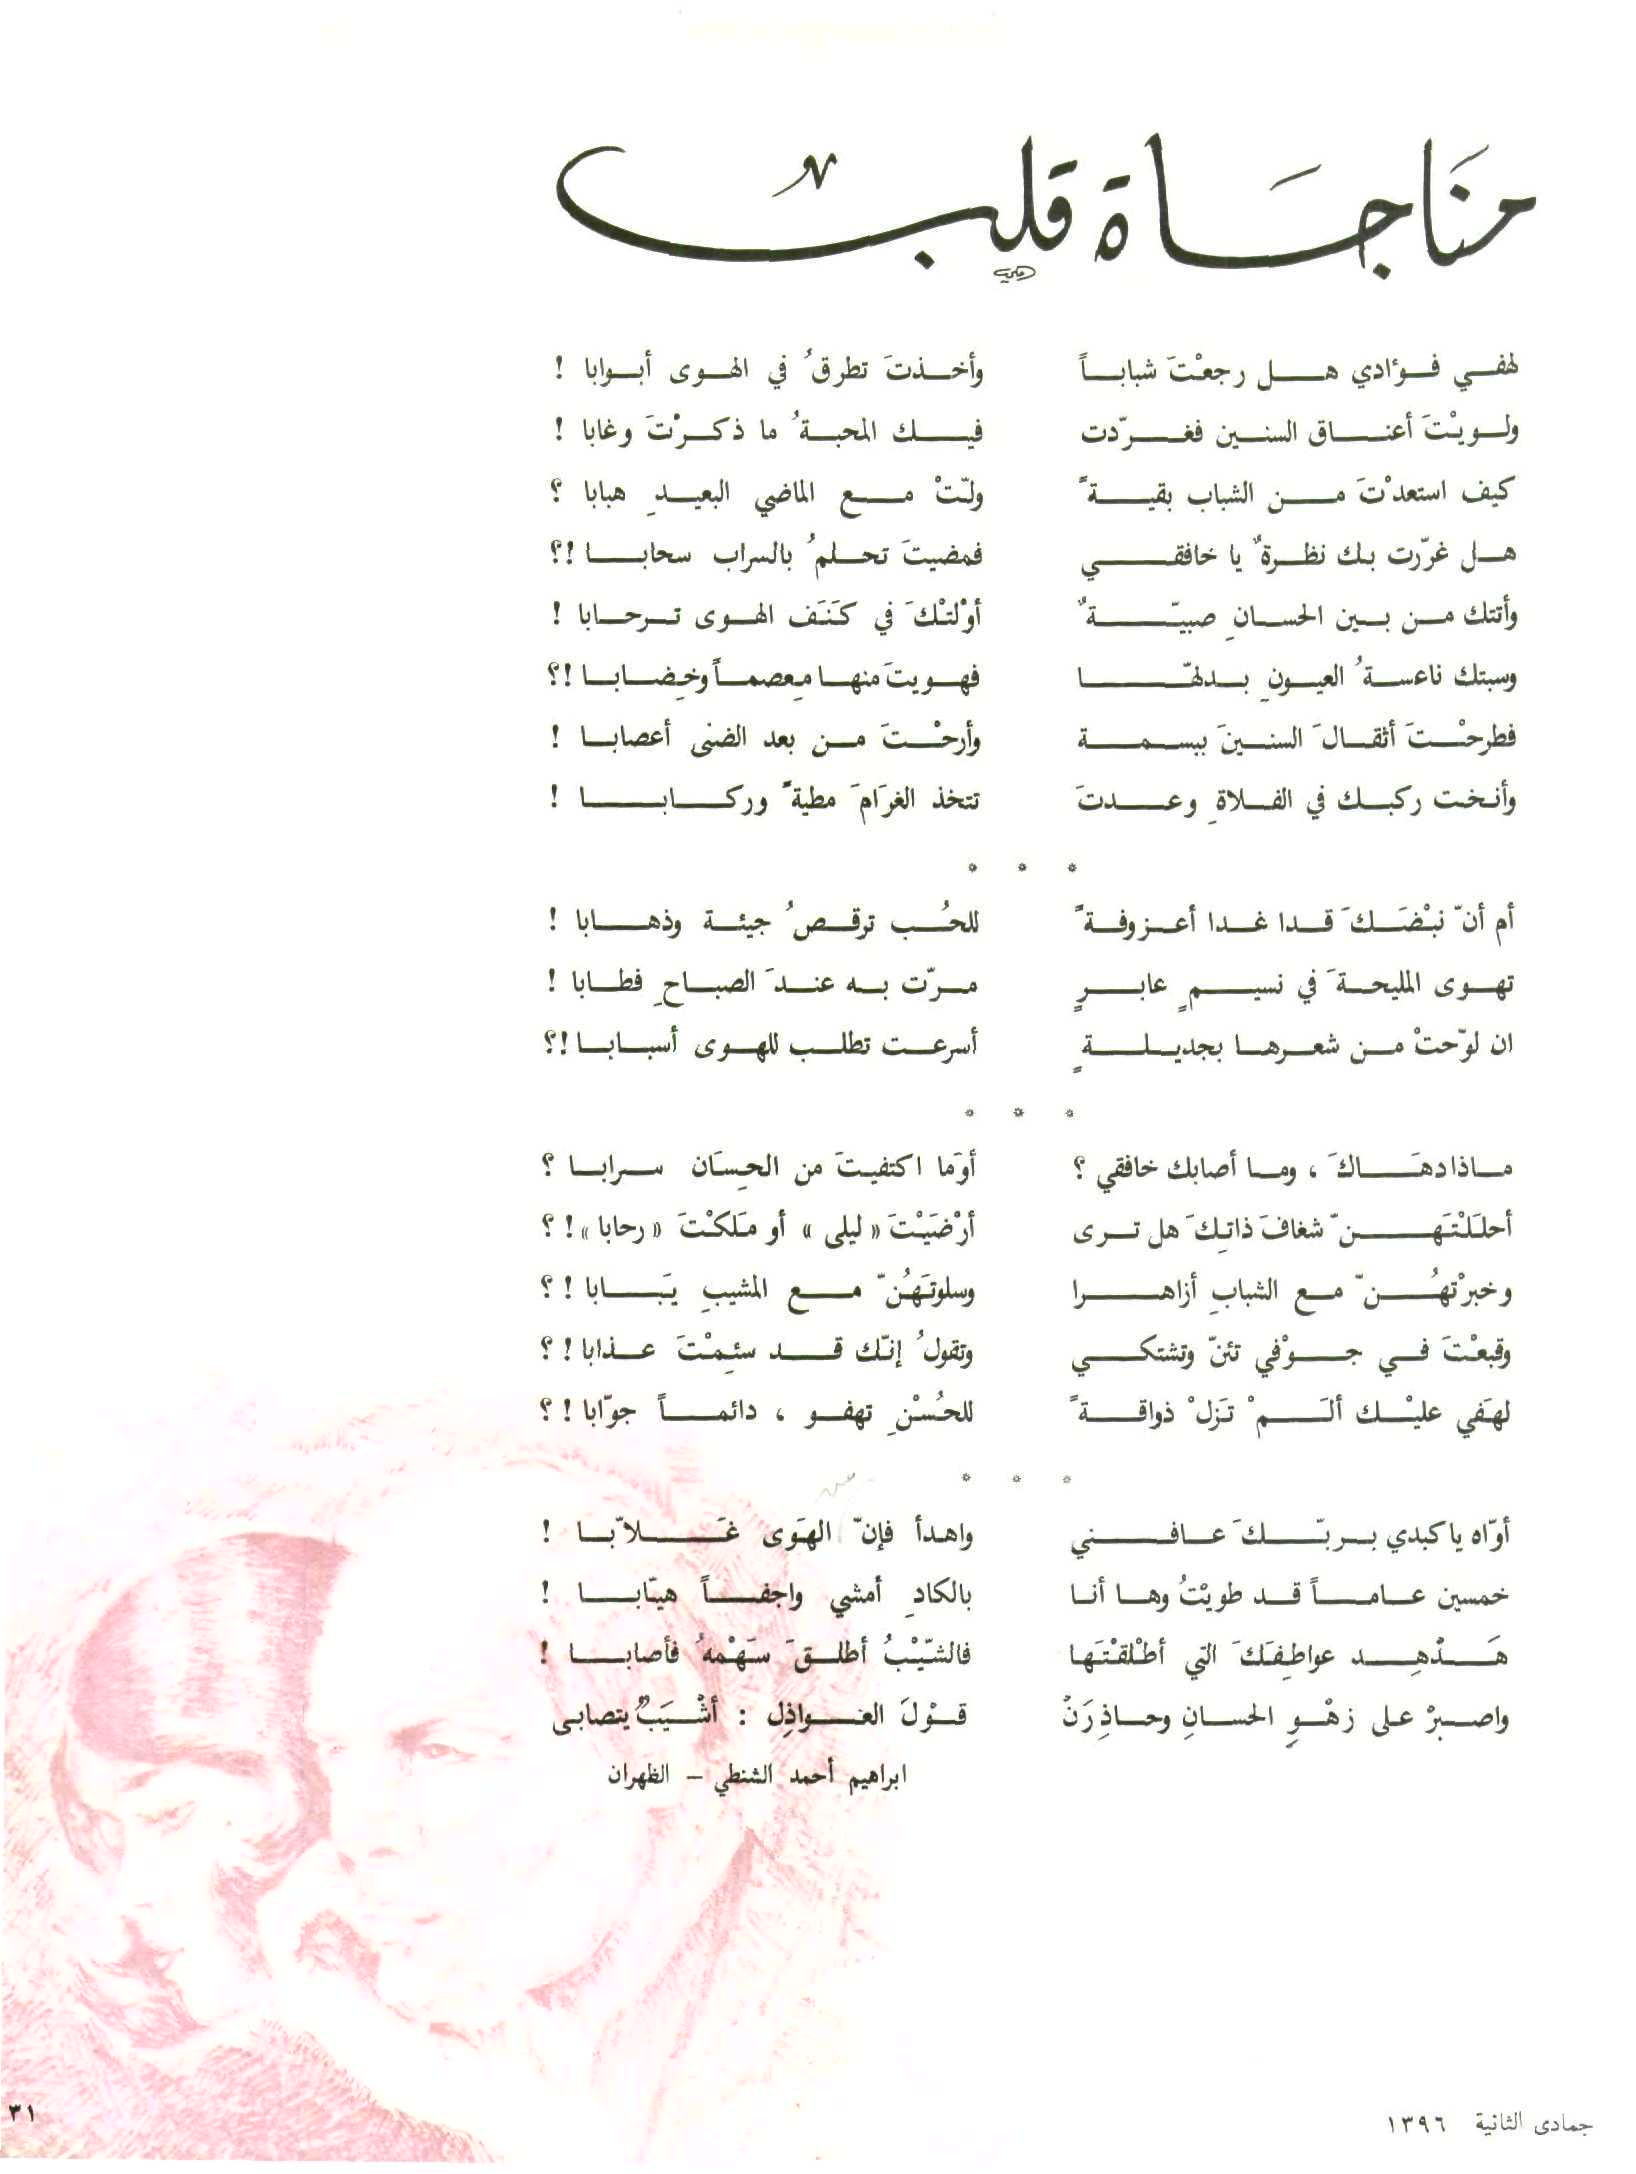 مناجاة قلب
لهفي فؤادي هل رجعْتَ شباباً وأخذتَ تطرقُ في الهوى أبوابا !
ولويْتَ أعناق السنين فغرّدت فيك المحبةُ ما ذكرْتَ وغابا !
كيف استعدْتَ من الشباب بقيةً ولّتْ مع الماضي البعيدِ هبابا ؟
هل غرّرت بك نظرةٌ يا خافقي فمضيتَ تحلمُ بالسراب سحابا !؟
وأتتك من بين الحسانِ صبيّةٌ أوْلتْكَ في كَنَف الهوى ترحابا !
وسبتك ناعسةُ العيونِ بدلهّا فهويتَ منها مِعصماً وخِضابا !؟
فطرحْتَ أثقالَ السنينَ ببسمة وأرحْتَ من بعد الضنى أعصابا !
وأنخت ركبك في الفلاةِ وعدتَ تتخذ الغرَامَ مطيةً وركابا !
* * *
أم أنّ نبْضَكَ قدا غدا أعزوفةً للحُب ترقصُ جيئة وذهابا !
تهوى المليحةَ في نسيمٍ عابرٍ مرّت به عندَ الصباحِ فطابا !
ان لوّحتْ من شعرها بجديلةٍ أسرعت تطلب للهوى أسبابا !؟
* * *
ماذا دهَاكَ ، وما أصابك خافقي ؟ أوَما اكتفيتَ من الحِسَان سرابا ؟
أحلَلْتَهنّ شغافَ ذاتِكَ هل ترى أرْضَيْتَ « ليلى » أو مَلَكْتَ « رحابا » ! ؟
وخبرْتهُنّ مع الشبابِ أزاهرا وسلوتَهُنّ مع المشيبِ يَبَابا ! ؟
وقبعْتَ في جوْفي تئنّ وتشتكي وتقولُ إنّك قد سئِمْتَ عذابا ! ؟
لهَفي عليْك ألَمْ تزَلْ ذواقةً للحُسْنِ تهفو ، دائماً جوّابا ! ؟
* * *
أوّاه يا كبدي بربّكَ عافني واهدأ فإنّ الهَوَى غَلاّبا !
خمسين عاماً قد طويْتُ وها أنا بالكادِ أمشي واجفاً هيّابا !
هَدْهِد عواطِفَكَ التي أطْلقْتَها فالشّيْبُ أطلقَ سَهْمهُ فأصابا !
واصبرْ على زهْوِ الحسانِ وحاذِرَنْ قوْلَ العواذِل : أشْيَبٌ يتصابى
ابراهيم أحمد الشنطي – الظهران
جمادى الثانية ١٣٩٦
٣١